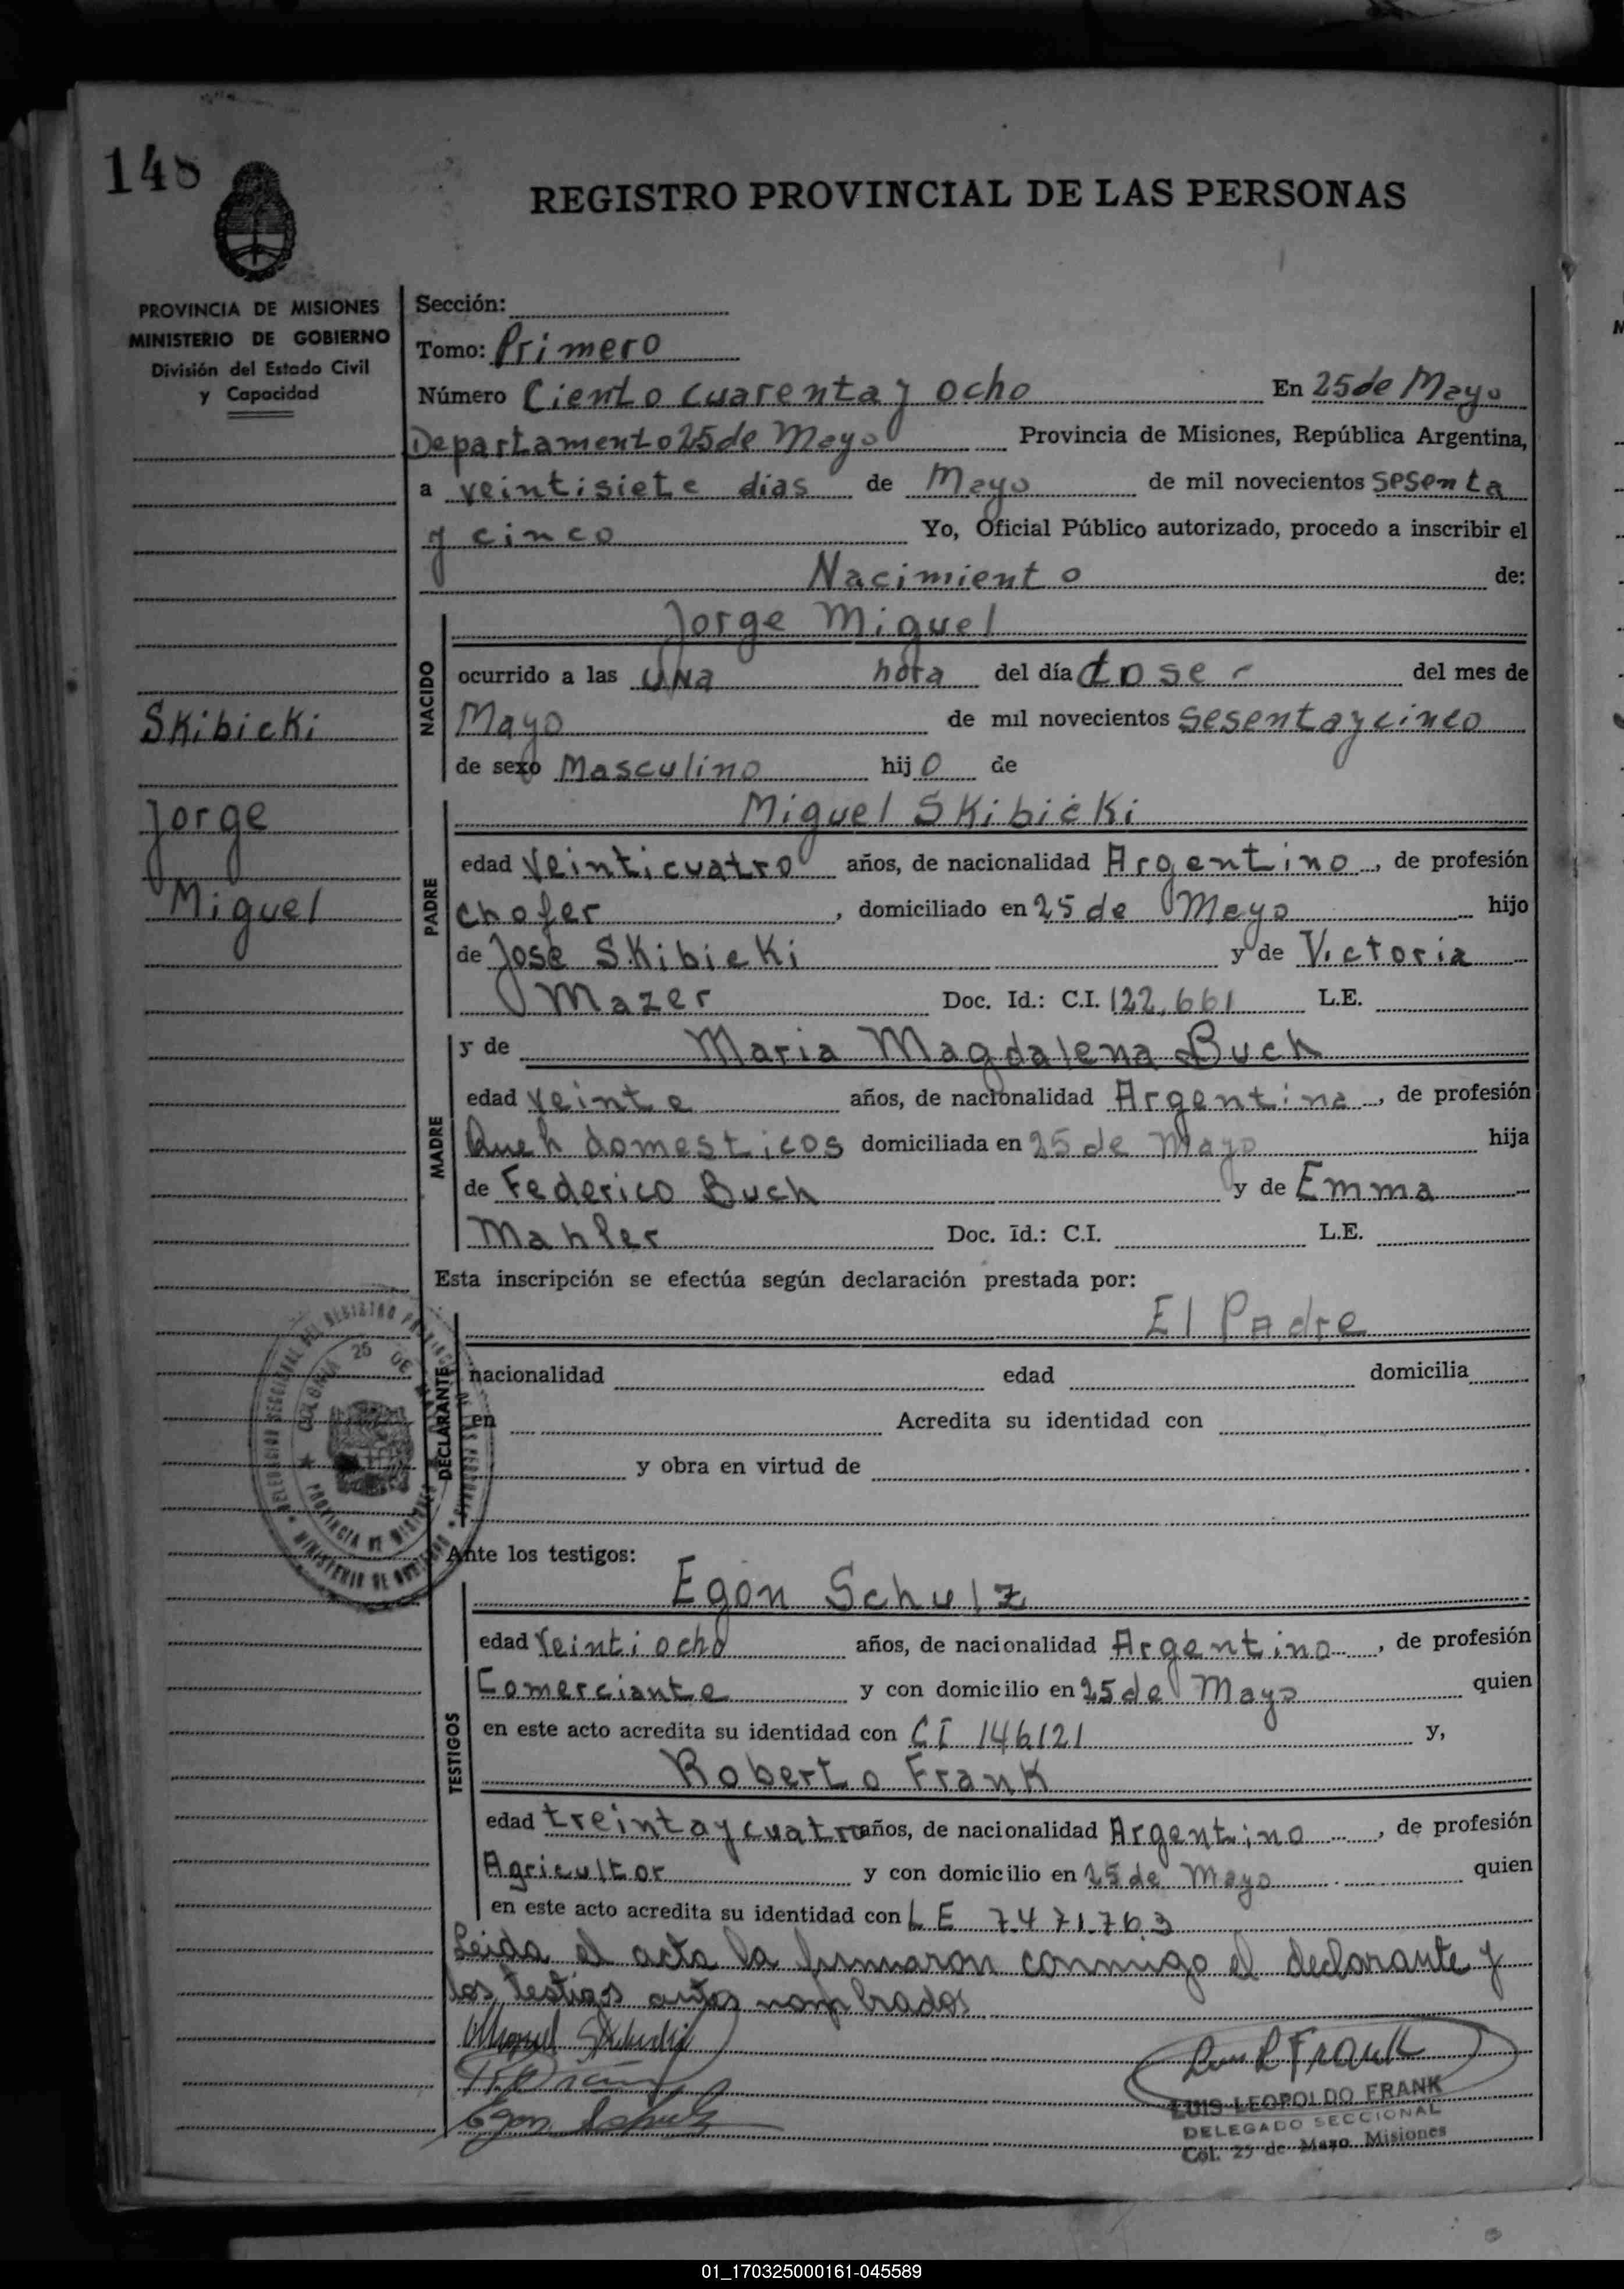 148
REGISTRO PROVINCIAL DE LAS PERSONAS
PROVINCIA DE MISIONES
MINISTERIO DE GOBIERNO
División del Estado Civil
y Capacidad
Skibicki
Jorge
Miguel
Sección:
Tomo: Primero
Número Ciento cuarenta y ocho En 25 de Mayo
Departamento 25 de Mayo Provincia de Misiones, República Argentina,
a veintisiete dias de Mayo de mil novecientos sesenta
y cinco Yo, Oficial Público autorizado, procedo a inscribir el
Nacimiento de:
NACIDO
Jorge Miguel
ocurrido a las una hora del día dose - del mes de
Mayo de mil novecientos sesenta y cinco
de sexo Masculino hijo de
PADRE
Miguel Skibicki
edad Veinticuatro años, de nacionalidad Argentino, de profesión
chofer, domiciliado en 25 de Mayo hijo
de José Skibicki y de Victoria
Mazer Doc. Id.: C.I. 122,661 L.E.
MADRE
y de Maria Magdalena Buch
edad veinte años, de nacionalidad Argentina, de profesión
Queh domesticos domiciliada en 25 de Mayo hija
de Federico Buch y de Emma
Mahler Doc. Id.: C.I. L.E.
Esta inscripción se efectúa según declaración prestada por:
DECLARANTE
El Padre
nacionalidad edad domicilia
en Acredita su identidad con
y obra en virtud de
COLONIA 25 DE
PROVINCIA DE MISIONES
Ante los testigos:
TESTIGOS
Egon Schulz
edad Veintiocho años, de nacionalidad Argentino, de profesión
Comerciante y con domicilio en 25 de Mayo quien
en este acto acredita su identidad con CI 146121 y,
Roberto Frank
edad treinta y cuatro años, de nacionalidad Argentino, de profesión
Agricultor y con domicilio en 25 de Mayo quien
en este acto acredita su identidad con L E 7.471.763
Leida el acta la firmaron conmigo el declarante y
los testigos antes nombrados
Miguel Skibicki
Egon Schulz
Luis L Frank
LUIS LEOPOLDO FRANK
DELEGADO SECCIONAL
Col. 25 de Mayo Misiones
01_170325000161-045589